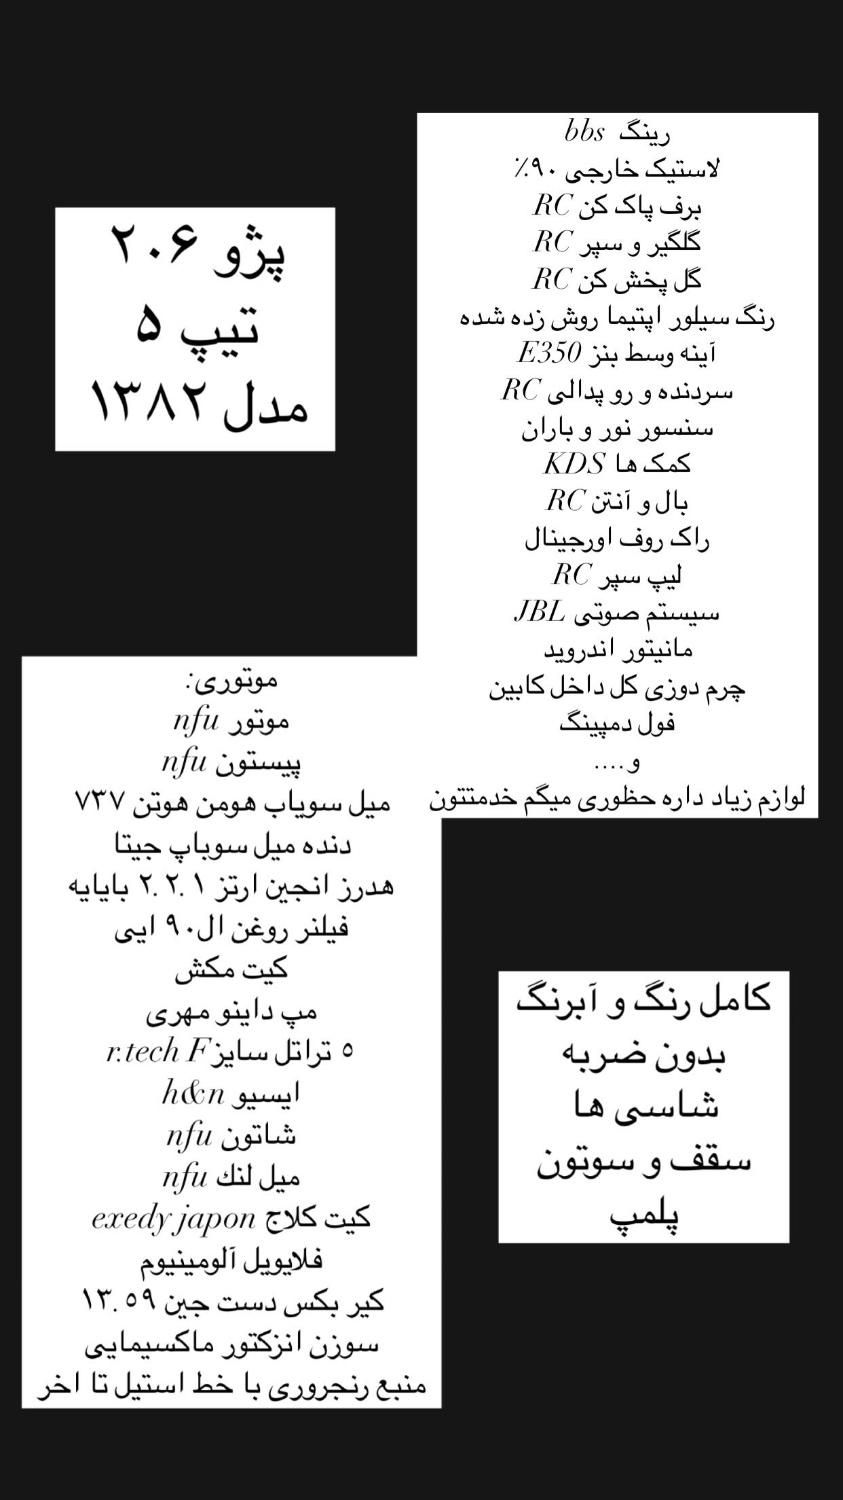 پژو ۲۰۶
تیپ ۵
مدل ۱۳۸۲
رینگ bbs
لاستیک خارجی ۹۰٪
برف پاک کن RC
گلگیر و سپر RC
گل پخش کن RC
رنگ سیلور اپتیما روش زده شده
آینه وسط بنز E350
سردنده و رو پدالی RC
سنسور نور و باران
کمک ها KDS
بال و آنتن RC
راک روف اورجینال
لیپ سپر RC
سیستم صوتی JBL
مانیتور اندروید
چرم دوزی کل داخل کابین
فول دمپینگ
و....
لوازم زیاد داره حظوری میگم خدمتتون
موتوری:
موتور nfu
پیستون nfu
میل سوپاب هومن هوتن ۷۳۷
دنده میل سوباپ جیتا
هدرز انجین ارتز ۲.۲.۱ بایایه
فیلنر روغن ال۹۰ ایی
کیت مکش
مپ داینو مهری
۵ تراتل سایزr.tech F
ایسیو h&n
شاتون nfu
میل لنك nfu
کیت کلاج exedy japon
فلایویل آلومینیوم
کیر بکس دست جین ۱۳.۵۹
سوزن انزکتور ماکسیمایی
منبع رنجروری با خط استیل تا اخر
کامل رنگ و آبرنگ
بدون ضربه
شاسی ها
سقف و سوتون
پلمپ